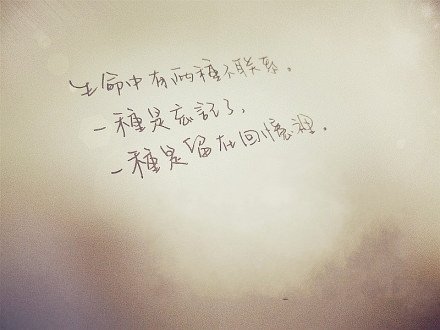 生命中有兩種不联系。
一種是忘記了.
一種是留在回憶裡.